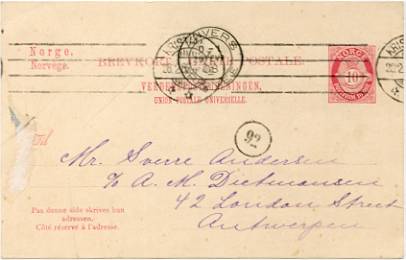 Norge.
Norvège.
BREVKORT CARTE POSTALE.
VERDENSPOSTFORENINGEN.
UNION POSTALE UNIVERSELLE.
NORGE
10
ANVERS
92
Til
Mr. Sverre Andersen
℅ A. M. Dietmansen
42 London Street
Antwerpen
Paa denne side skrives kun
adressen.
Côté réservé à l'adresse.